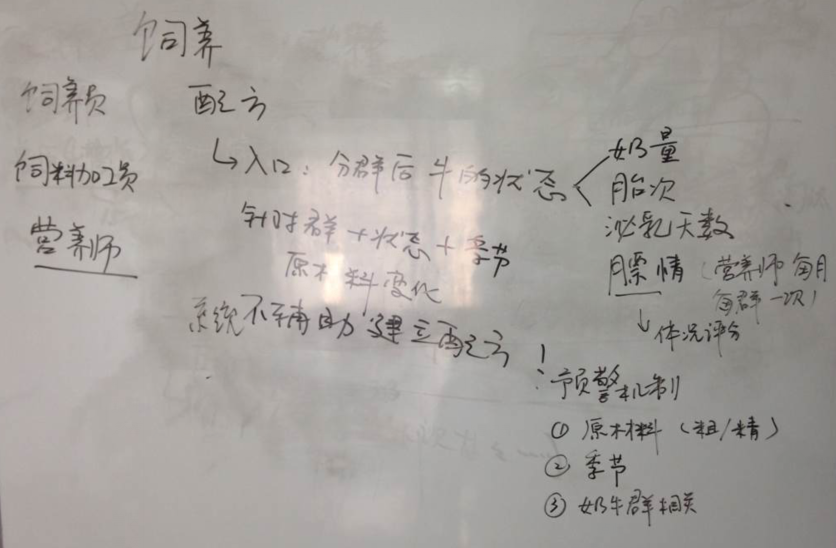 饲养
饲养员
饲料加工员
营养师
配方
↳入口：分群后牛的状态
奶量
胎次
泌乳天数
膘情（营养师每月
每群一次）
↓体况评分
针对群+状态+季节
原材料变化
系统不辅助建立配方！
预警机制
① 原材料（粗/精）
② 季节
③ 奶牛群相关